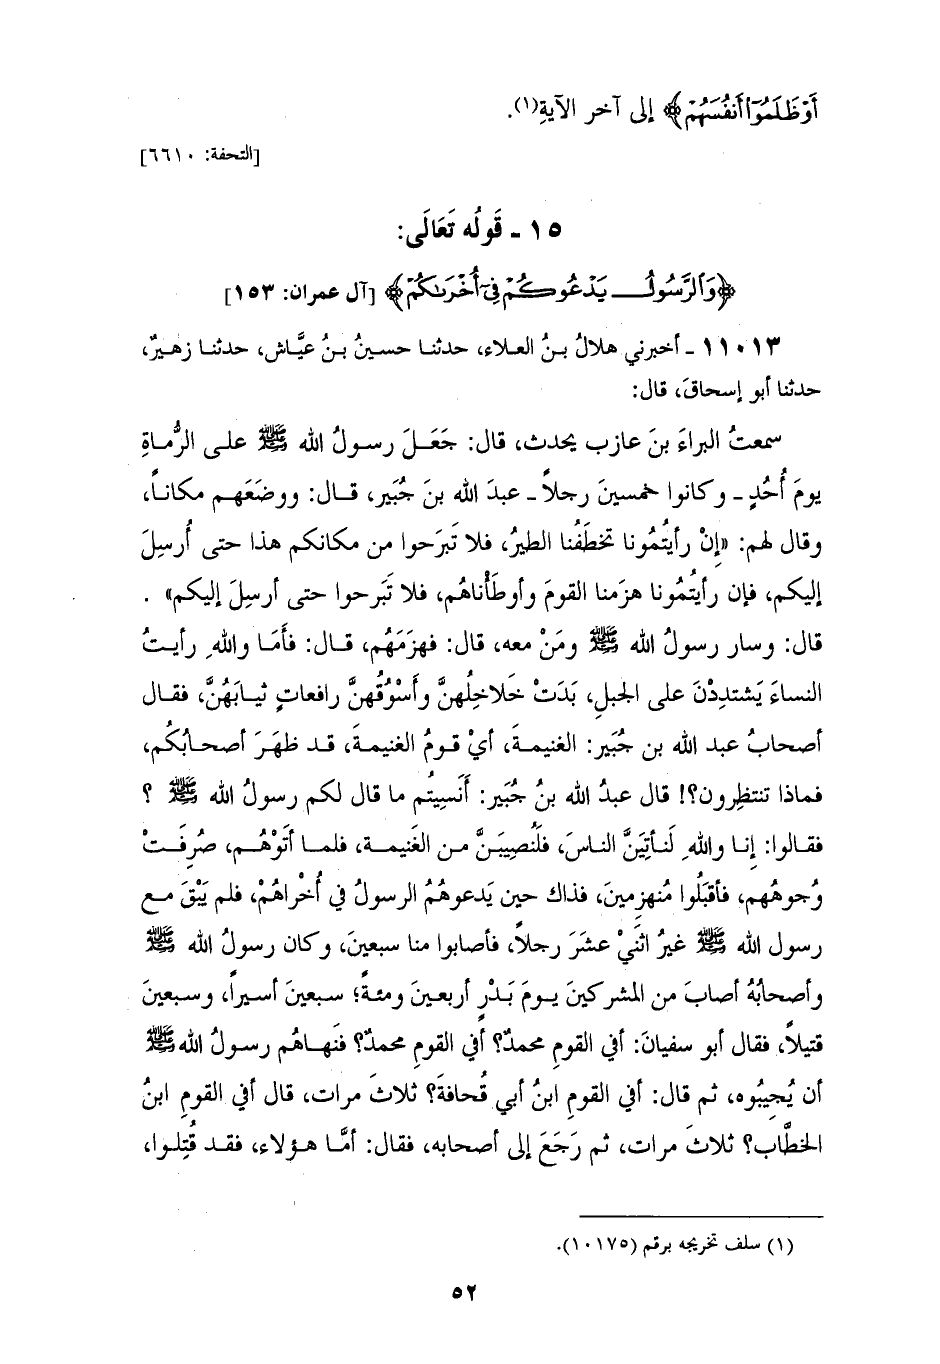 أَوْ ظَلَمُوٓا أَنفُسَهُمْ﴾ إلى آخر الآيةِ(١).
[التحفة: ٦٦١٠]
١٥ - قَولُه تَعَالَى:
﴿وَٱلرَّسُولُ يَدْعُوكُمْ فِىٓ أُخْرَىٰكُمْ﴾ [آل عمران: ١٥٣]
١١٠١٣ - أخبرني هلالُ بنُ العلاء، حدثنا حسينُ بنُ عيَّاش، حدثنا زهيرٌ،
حدثنا أبو إسحاقَ، قال:
سمعتُ البراءَ بنَ عازب يحدث، قال: جَعَلَ رسولُ الله ﷺ على الرُّماةِ
يومَ أُحُدٍ - وكانوا خمسينَ رجلاً - عبدَ الله بنَ جُبَير، قال: ووضَعَهم مكاناً،
وقال لهم: «إنْ رأيتُمُونا تخطَفُنا الطيرُ، فلا تَبرَحوا من مكانكم هذا حتى أُرسِلَ
إليكم، فإن رأيتُمُونا هزَمنا القومَ وأوطَأْناهُم، فلا تَبرحوا حتى أرسِلَ إليكم» .
قال: وسار رسولُ الله ﷺ ومَنْ معه، قال: فهزَمَهُم، قال: فأَمَا واللهِ رأيتُ
النساءَ يَشتدِدْنَ على الجبلِ، بَدَتْ خَلاخِلُهنَّ وأَسْوُقُهنَّ رافعاتٍ ثيابَهُنَّ، فقال
أصحابُ عبد الله بن جُبَير: الغنيمةَ، أيْ قومُ الغنيمةَ، قد ظهَرَ أصحابُكُم،
فماذا تنتظِرون؟! قال عبدُ الله بنُ جُبَير: أَنَسِيتُم ما قال لكم رسولُ الله ﷺ ؟
فقالوا: إنا واللهِ لَنأتيَنَّ الناسَ، فلَنُصِيبَنَّ من الغَنيمة، فلما أتَوْهُم، صُرِفَتْ
وُجوهُهم، فأقبَلُوا مُنهزِمينَ، فذاك حين يَدعوهُمُ الرسولُ في أُخْراهُمْ، فلم يَبْقَ مع
رسول الله ﷺ غيرُ اثنَيْ عشَرَ رجلاً، فأصابوا منا سبعينَ، وكان رسولُ الله ﷺ
وأصحابُهُ أصابَ من المشركينَ يومَ بَدْرٍ أربعينَ ومئةً؛ سبعينَ أسيراً، وسبعينَ
قتيلاً، فقال أبو سفيانَ: أفي القومِ محمدٌ؟ أفي القومِ محمدٌ؟ فنَهاهُم رسولُ الله ﷺ
أن يُجِيبُوه، ثم قال: أفي القومِ ابنُ أبي قُحافةَ؟ ثلاثَ مرات، قال أفي القومِ ابنُ
الخطَّاب؟ ثلاثَ مرات، ثم رَجَعَ إلى أصحابه، فقال: أمَّا هؤلاء، فقد قُتِلوا،
(١) سلف تخريجه برقم (١٠١٧٥).
٥٢